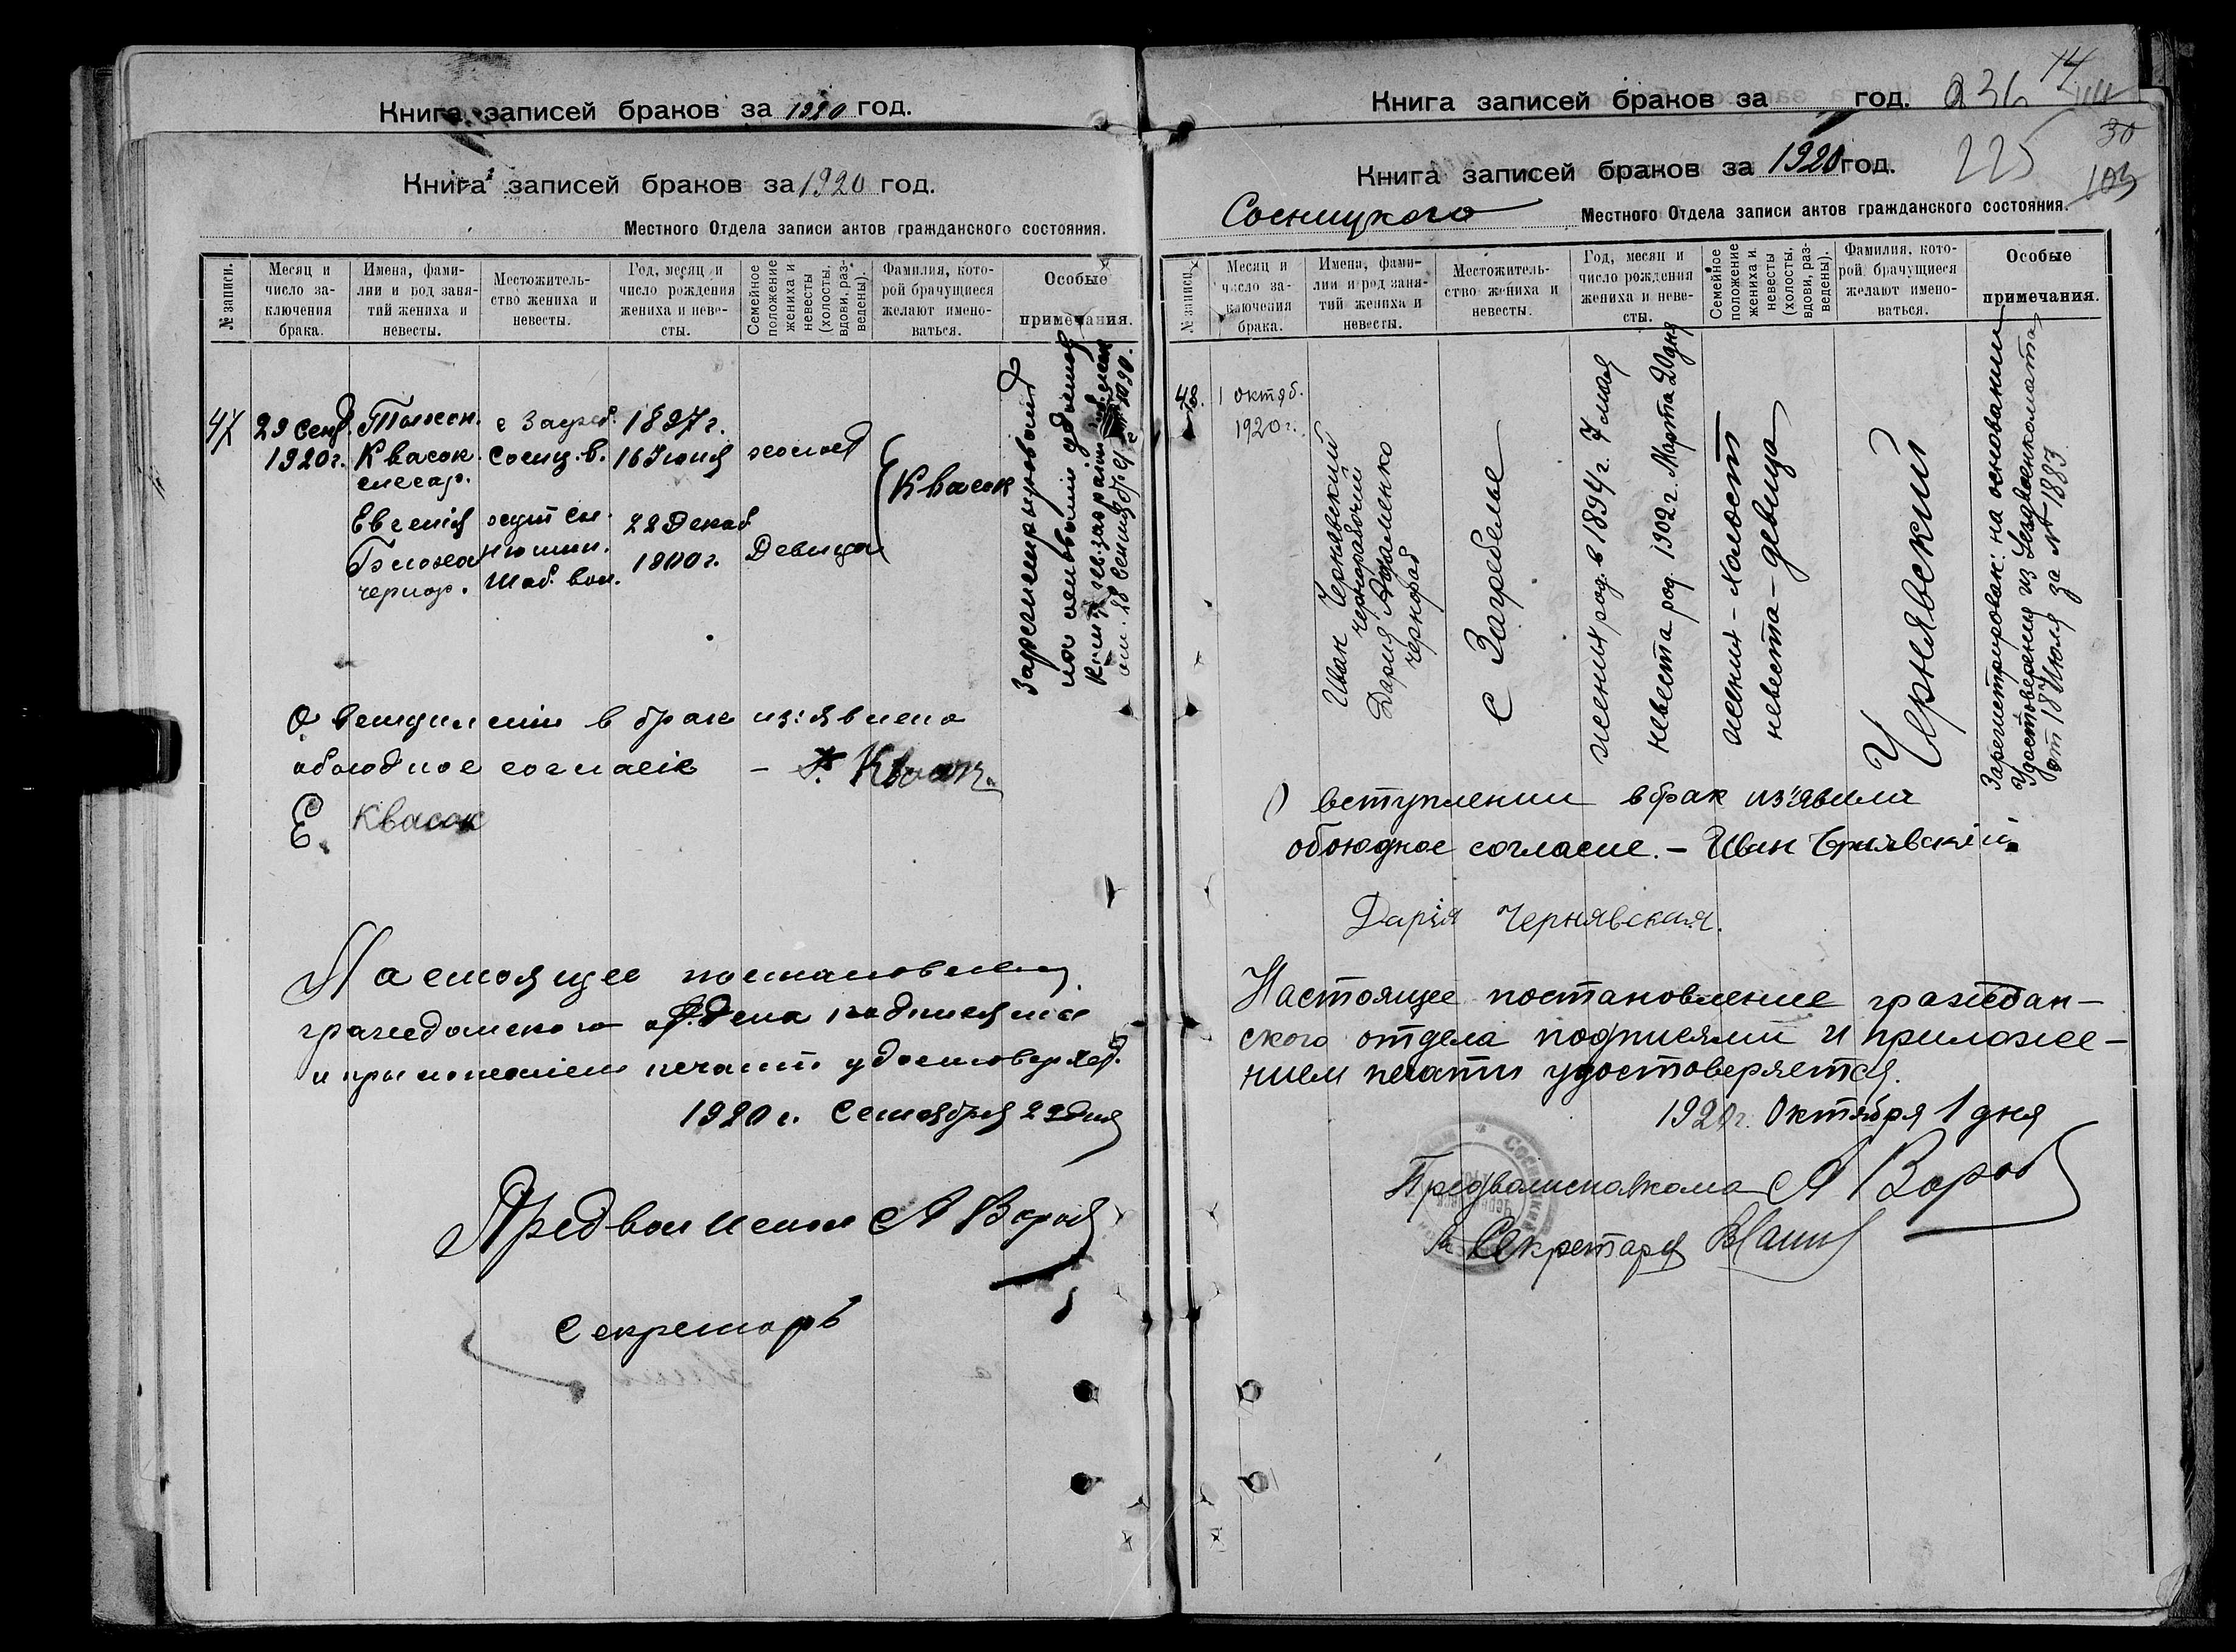 Книга записей браков за 1920 год.
Книга записей браков за 1920 год.
Местного Отдела записи актов гражданского состояния.
№ записи.
Месяц и число заключения брака.
Имена, фамилии и род занятий жениха и невесты.
Местожительство жениха и невесты.
Год, месяц и число рождения жениха и невесты.
Семейное положение жениха и невесты (холосты, вдови, разведены).
Фамилия, которой брачущиеся желают именоваться.
Особые примечания.
47
29 Сент.
1920г.
Квасок
слесар.
Евгения
чернор.
с Загреб.
Сосниц. в.
Шаб. вол.
1897 г.
16 Июня
22 Декаб
1900 г.
холост
Девица
Квасок
Зарегистрирован
на основании удостов
О вступлении в брак из:явлено
обоюдное согласіе — Квасок.
Е. Квасок
Настоящее постановлен.
гражданского отдела подписями
и приложением печати удостоверяет.
1920 г. Сентября 29 дня
Предволисполк А Вороб
Секретарь
Книга записей браков за год.
236
14
Книга записей браков за 1920 год.
225
30
103
Сосницкого Местного Отдела записи актов гражданского состояния.
№ записи.
Месяц и число заключения брака.
Имена, фамилии и род занятий жениха и невесты.
Местожительство жениха и невесты.
Год, месяц и число рождения жениха и невесты.
Семейное положение жениха и невесты (холосты, вдови, разведены).
Фамилия, которой брачущиеся желают именоваться.
Особые примечания.
48.
1 октяб.
1920 г.
Иван Чернявский
чернорабочий
Дария Адаменко
чернораб
с Загребелье
жених род. в 1894 г. 7 мая
невеста род. 1902 г. Марта 20 дня
жених - холост
невеста - девица
Чернявский
Зарегистрирован: на основании
Удостоверения из
от 18 Июля за № 1883
О вступлении в брак из'явили
обоюдное согласие. — Иван Чрнявскій.
Дарія Чернявская.
Настоящее постановление граждан-
ского отдела подписями и приложе-
нием печати удостоверяется.
1920 г. Октября 1 дня
Предволисполкома А Вороб
За Секретаря